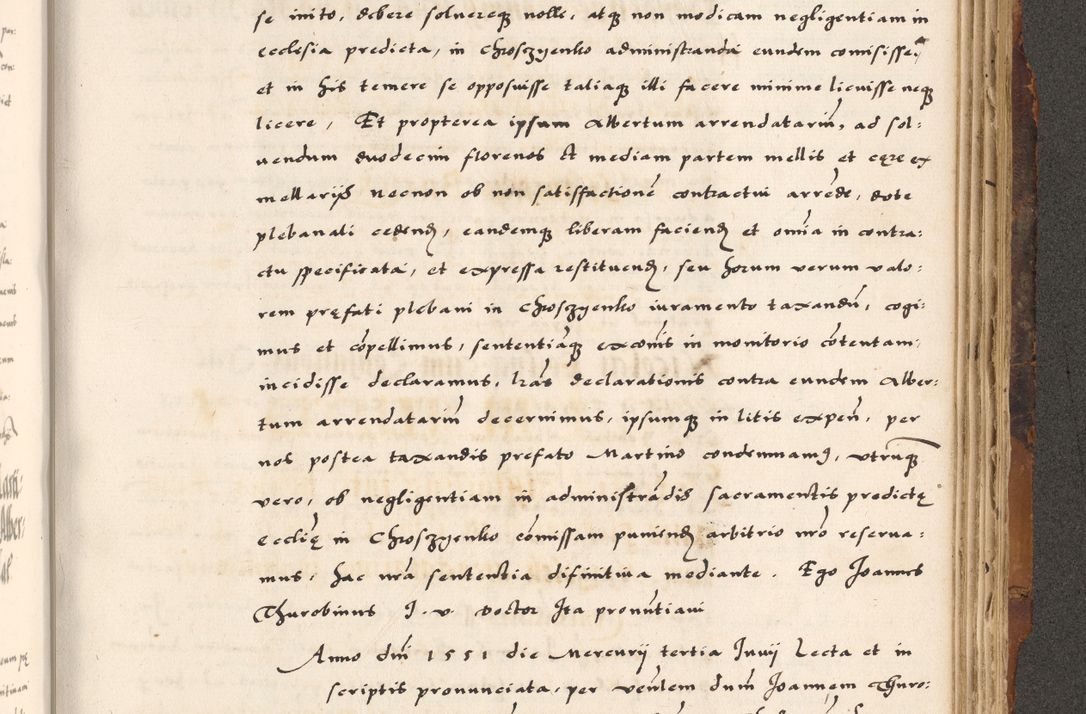 se inito, debere soluereq3 nolle, atq3 non modicam negligentiam in
ecclesia predicta, in Chroszyenko administranda eundem comisisse,
et in his temere se opposuisse taliaq3 illi facere minime licuisse neq3
licere, Et propterea ipsum Albertum arrendatariũ, ad sol:
uendum duodecim florenos & mediam partem mellis et cęre ex
mellarijs necnon ob non satisfactionẽ contractui arrẽde, dote
plebanali cedend, eandemq3 liberam faciend et omia in contra:
ctu specificata, et expressa restituend, seu horum verum valo:
rem pręfati plebani in Chroszyenko iuramento taxandũ, cogi:
mus et cõpellimus, sententiãq3 excõis in monitorio cõtentam
incidisse declaramus, lras declarationis contra eundem Alber:
tum arrendatariũ decernimus, ipsumq3 in litis expeñ, per
nos postea taxandis prefato Martino condemnam9, vtrũq3
vero, ob negligentiam in administrãdis sacramentis predictę
Ecclię in Chroszyenko cõmissam puniend arbitrio nro reserua:
mus, hac nra sententia difinitiua mediante. Ego Joannes
Thurobinus J. v. Doctor Ita pronũtiaui
Anno dñi 1551 die Mercurij tertia Junij Lecta et in
scriptis pronunciata, per veñlem dum̃ Joannem Thuro: